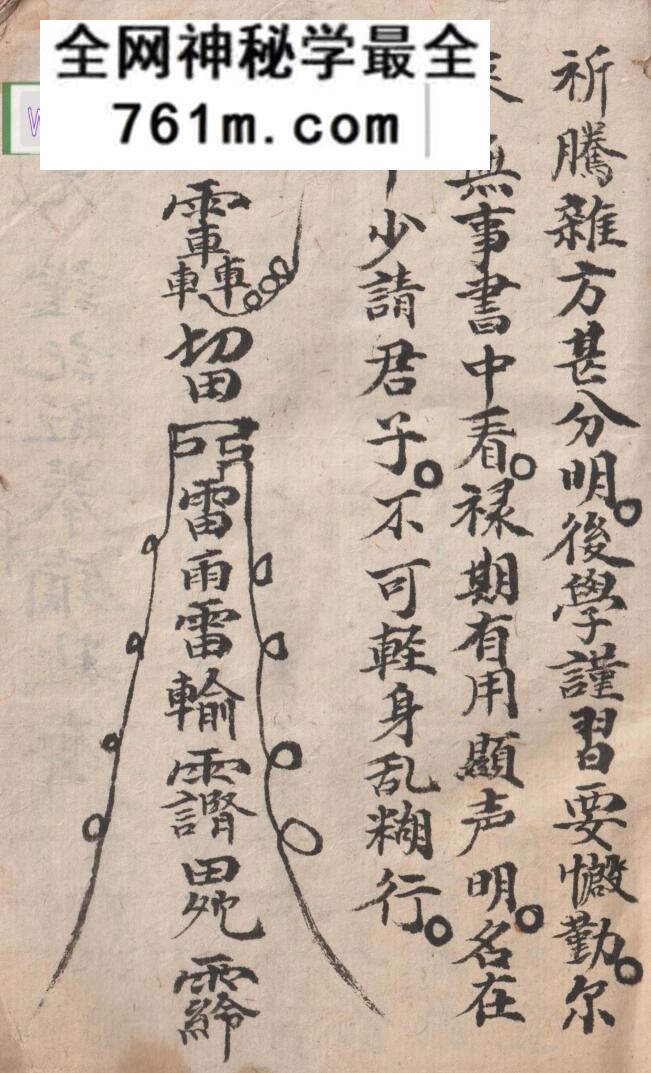 全网神秘学最全
761m.com
祈騰雜方甚分明。後學謹習要慇勤。尔
無事書中看。禄期有用顯声明。名在
少請君子。不可軽身乱糊行。
留雷雨雷輸